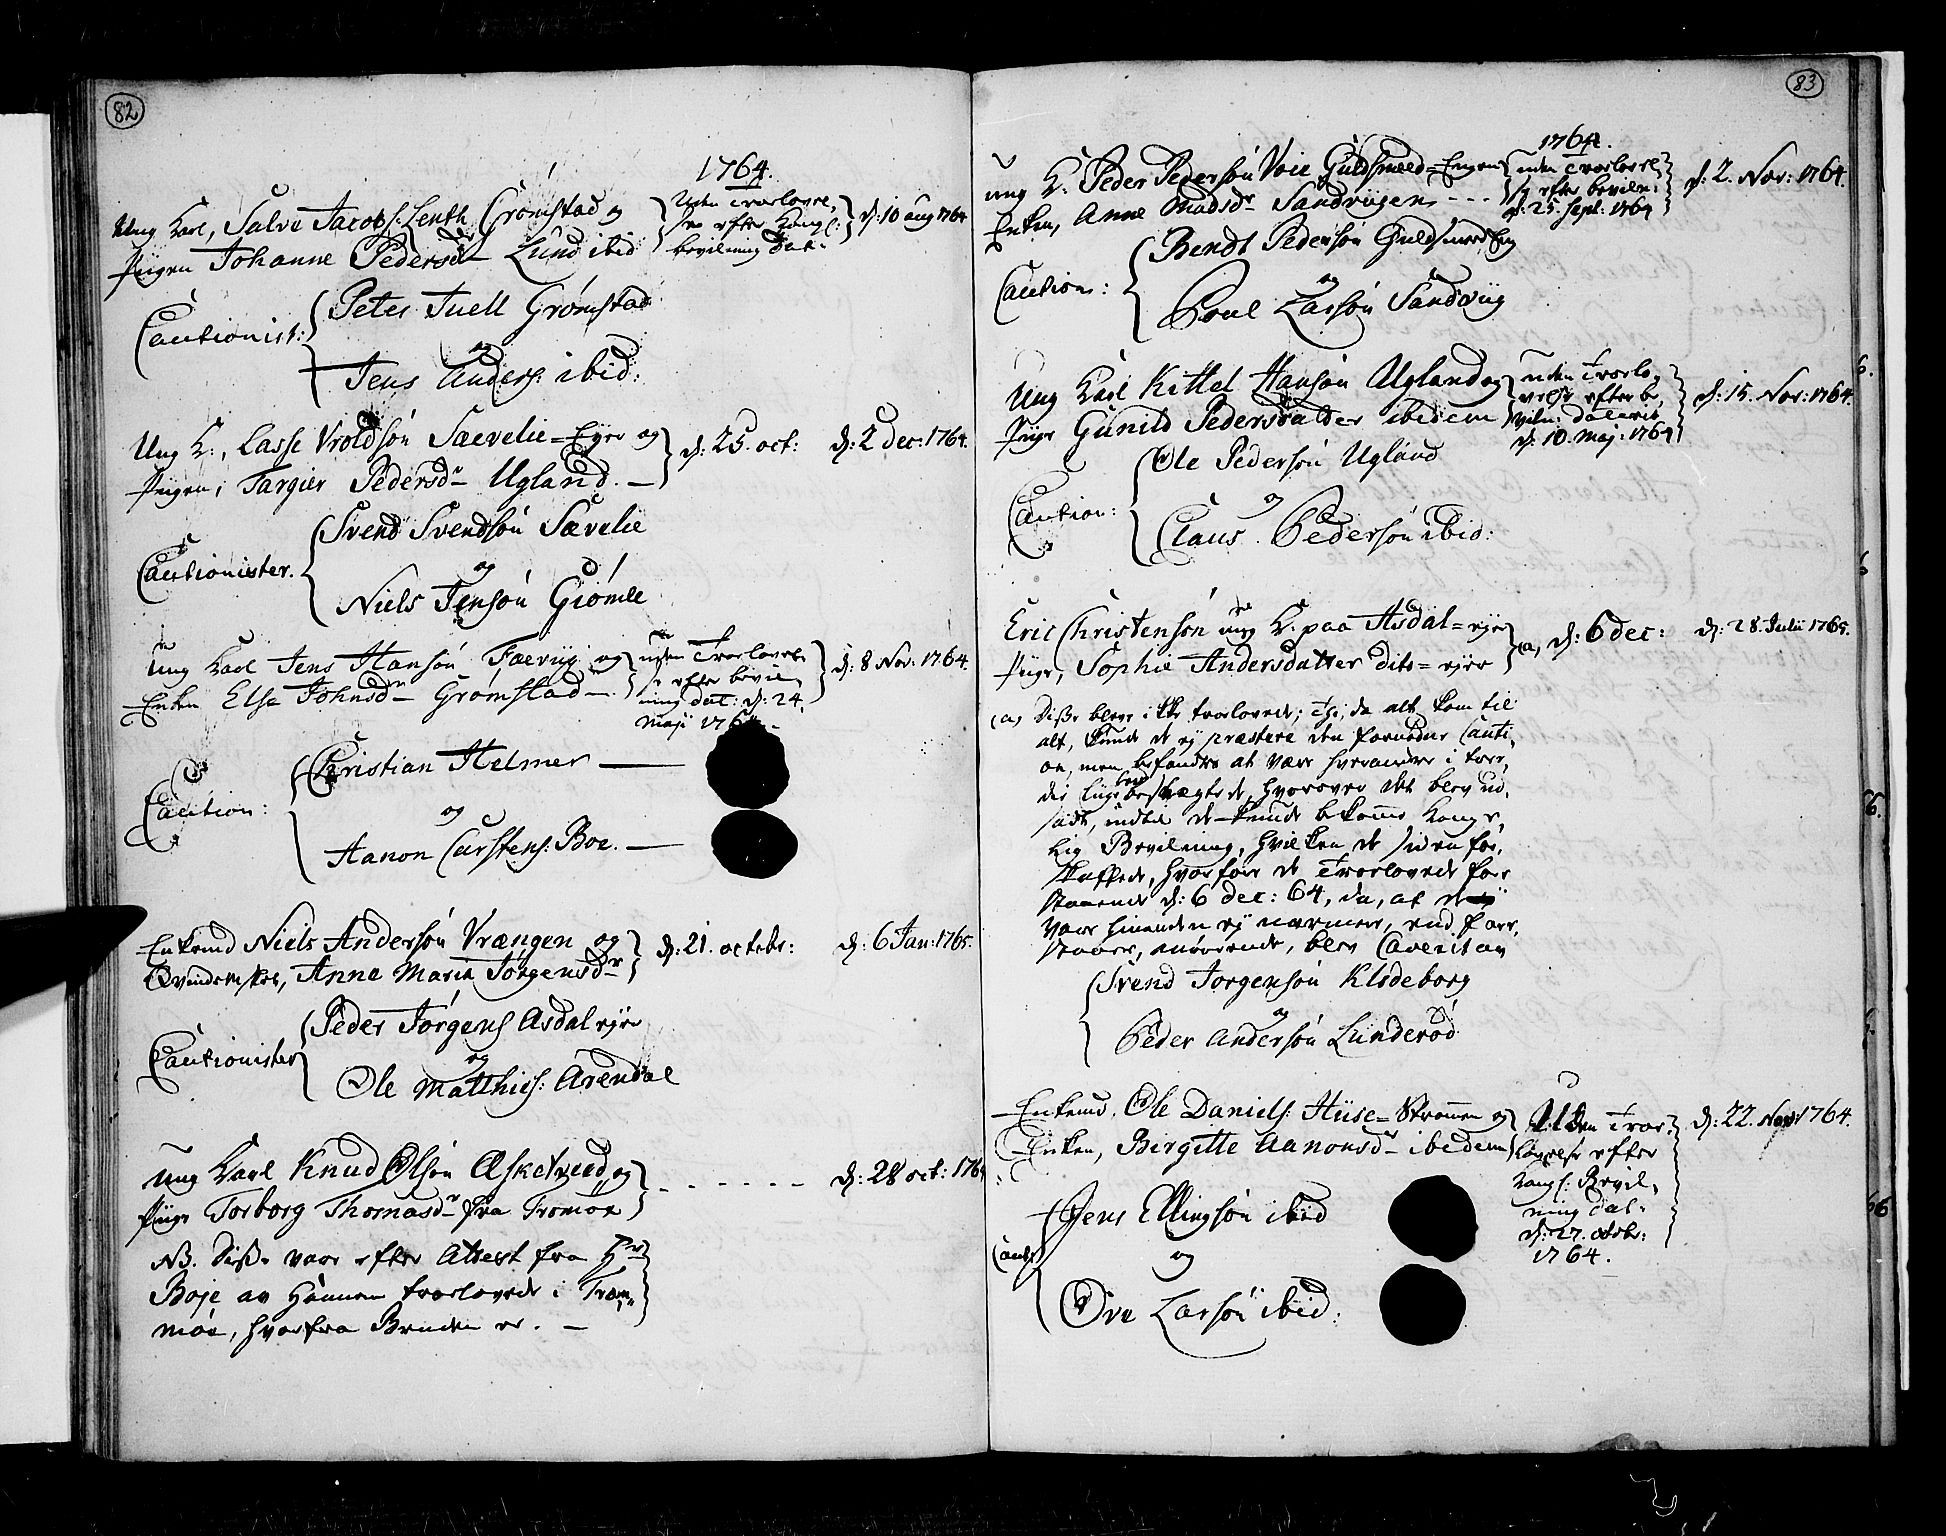 82
1764.
Ung Karl, Salve Jacobs: Lenth Grømstad og
Piigen Johanne Pedersdr Lund ibid
Uden Troelovel,
se efter Kongl:
bevilning dat:
d: 10 aug 1764
Cautionist:
Peter Juell Grømstad
og
Jens Anders: ibid:
Ung K:, Lasse Vroldsøn Sævelie=Eyer og
Piigen, Targier Pedersdr Ugland.
d: 25. oct:
d: 2 dec: 1764.
Cautionister.
Svend Svendsøn Sævelie
og
Niels Jensøn Giømle
Ung Karl Jens Hansøn Faeviig og
Enken Else Johnsdr Grømstad
uden Troelovel
se efter bevil,
ning dat: d: 24
Maji 1764
d: 8 Nov: 1764.
Caution:
Christian Helmer
og
Aanon Carstens: Boe.
Enkemd Niels Andersøn Vrængen og
Qvindemsket, Anne Maria Jørgensdr
d: 21. octobr:
d: 6 Jan: 1765.
Cautionister
Peder Jørgens Asdal ejer
og
Ole Matthies: Arendal
Ung Karl Knud Olsøn Æsketveed og
Piige Torborg Thomasdr fra Tromøe
d: 28 oct: 1764
NB. Disse vare efter Attest fra Hr
Boje av Hannem troelovede i Trom,
møe, hvorfra Bruden er.
83
1764.
ung K: Peder Pedersøn Voie Guldsmed=Engen
Enken, Anne Madsdr Sandviigen
uden Troelovel,
se efter beviln:
d: 25. Sept: 1764
d: 2. Nov: 1764.
Caution:
Bendt Pedersøn Guldsmed Eng
og
Poul Larsøn Sandviig
Ung Karl Kittel Hansøn Ugland og
Piige Gunild Pedersdatter ibidem
uden Troelo,
velse efter be,
viln: dateret
d: 10. Maj: 1764
d: 15. Nov: 1764.
Caution:
Ole Pedersøn Ugland
og
Claus Pedersøn ibid:
Eric Christensøn ung K: paa Asdal=ejer
Piige, Sophie Andersdatter dito=ejer
(a, d: 6 dec:
d: 28. Julii 1765.
(a) Disse bleve ikke troelovede; Thi, da alt kom til
alt, kunde de ej præstere den fornødne Cauti,
on, men befandtes at være hverandre i tre,
die Liige beslægtede, hvorover det blev ud,
sadt, indtil de kunde bekomme Konge,
lig Bevilning, hvilken de siden for,
skaffede, hvorfore de Troelovede fore
staaende d: 6 dec: 64, da, at de
vare hinanden ej nærmere, end fore,
staaer, anørende, blev Caverit av
Svend Jørgensøn Klodeborg
og
Peder Andersøn Lunderød
Enkemd. Ole Daniels: Huse=Strømmen og
Enken, Birgitte Aanonsdr ibidem
Uden Troe,
lovelse efter
Kongl: Bevil,
ning dat:
d: 27. octobr:
1764.
d: 22. Nov: 1764.
Caut:
Jens Ellingsøn ibid
og
Ove Larsøn ibid: